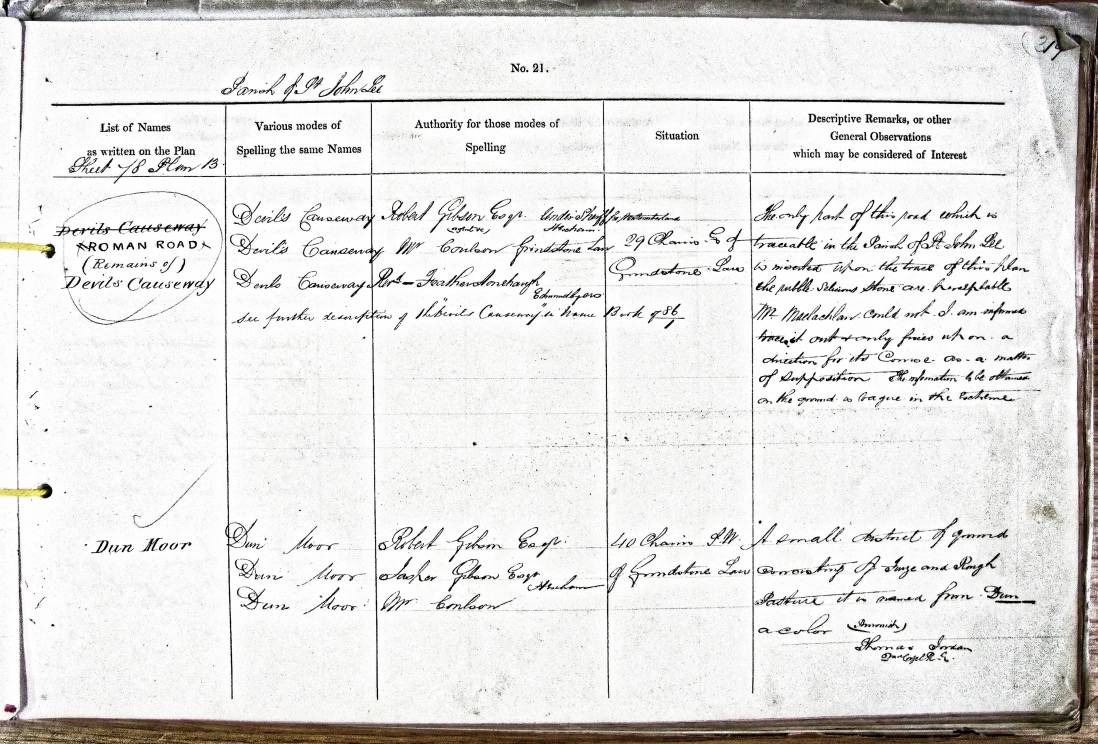 219
No. 21.
Parish of St John Lee
List of Names
as written on the Plan
Sheet 78 Plan 13
Various modes of
Spelling the same Names
Authority for those modes of
Spelling
Situation
Descriptive Remarks, or other
General Observations
which may be considered of Interest
Devils Causeway
ROMAN ROAD
(Remains of)
Devils Causeway
Devils Causeway
Devils Causeway
Devils Causeway
see further description of "Devils Causeway" in Name Book of 86/1
Robert Gibson Esqr. Under Sheriff for Northumberland
Hexham
Mr Coulson Grindstone Law
Revd Featherstonehaugh
Edmundbyers
29 Chains E of
Grindstone Law
The only part of this road which is
traceable in the Parish of St John Lee
is inserted upon the trace of this plan
the rubble Stones are perceptable
Mr Maclachlan could not I am informed
trace it out & only fixes upon a
direction for its Course as a matter
of Supposition The information to be obtained
on the ground is vague in the Extreme
Dun Moor
Dun Moor
Dun Moor
Dun Moor
Robert Gibson Esqr.
Jasper Gibson Esqr
Hexham
Mr Coulson
40 Chains S.W.
of Grindstone Law
A small district of ground
consisting of Furze and Rough
Pasture it is named from Dun
a color (Brownish)
Thomas Jordan
Corpl R.E.